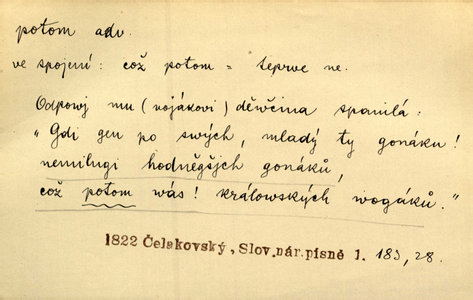 potom adv.
ve spojení: což potom = teprve ne.
Odpowj mu (vojákovi) děwčina spanilá:
"Gdi gen po swých, mladý ty gonáku!
nemilugi hodněgšjch gonáků,
což potom wás! králowských wogáků."
1822 Čelakovský, Slov. nár. písně 1. 183, 28.